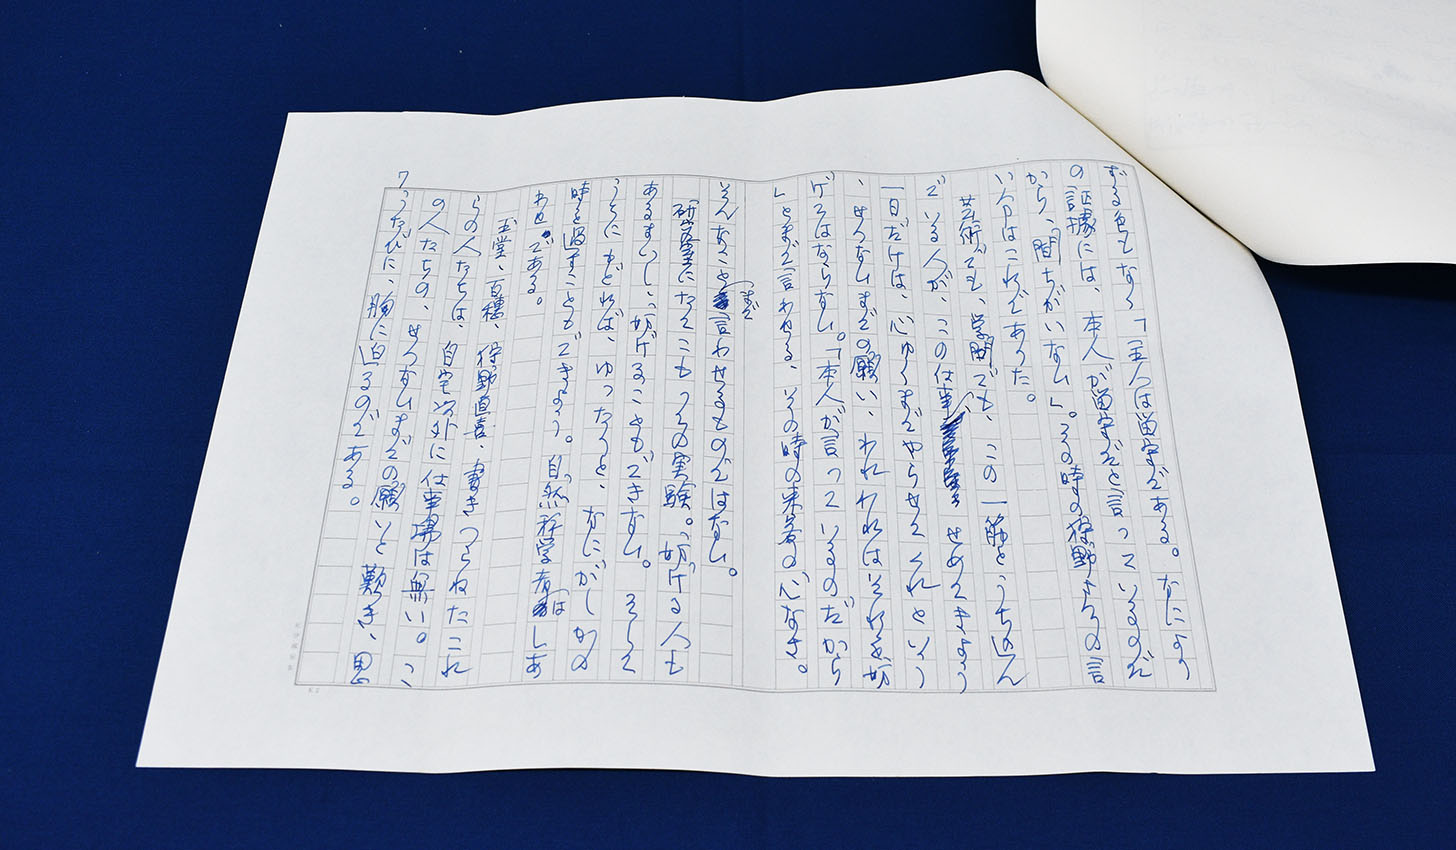 ずる色もなく「主人は留守である。なによりの
の証據には、本人が留守だと言っているのだ
から、間ちがいない」。その時の狩野さんの言
い分はこれであった。
芸術でも、学問でも、この一筋とうち込ん
でいる人が、この仕事 せめてきょう
一日だけは、心ゆくまでやらせてくれという
、せつないまでの願い、われわれはそれを妨
げてはならない。「本人が言っているのだから
」とまで言わせる、その時の来客の心なさ。
そんなことまで言わせるものではない。
研究室にたてこもっての実験。妨げる人も
あるまいし、妨げることもできない。そして
うちにもどれば、ゆったりと、なにがしかの
時を過すこともできよう。自然科学者はしあ
わせである。
玉堂、百穂、狩野直喜、書きつらねたこれ
らの人たちは、自宅以外に仕事場は無い。こ
の人たちの、せつないまでの願いと歎き、思
うたびに、胸に迫るのである。
7